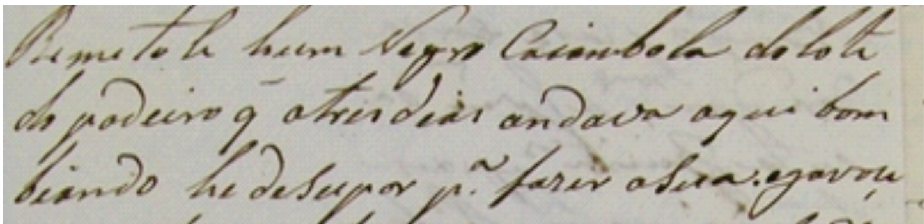 Remeto le hum Negro Caiambola do lote
do padeiro q̃ a tres dias andava aqui bom
biando he de supor p.ª fazer a sua